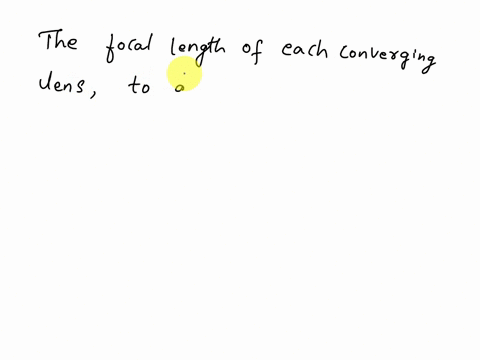 The focal length of each converging
lens, to